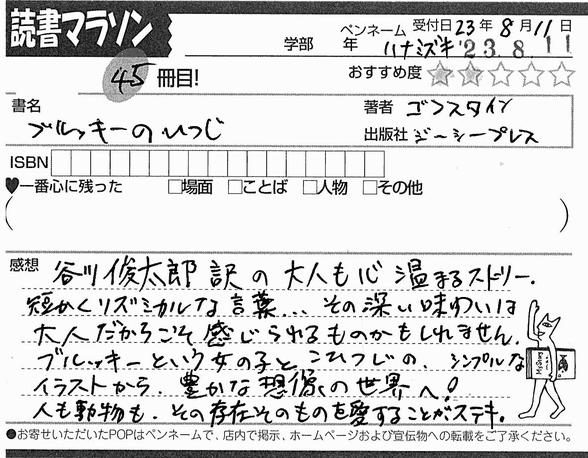 読書マラソン
学部 年 ペンネーム ハナミズキ 受付日 23年 8月 11日
'23.8.11
45冊目!
おすすめ度 ★★☆☆☆
書名 ブルッキーのひつじ
著者 ゴフスタイン
出版社 ジーシープレス
ISBN
♥一番心に残った □場面 □ことば □人物 □その他
( )
感想 谷川俊太郎訳の大人も心温まるストーリー.
短かくリズミカルな言葉...その深い味わいは
大人だからこそ感じられるものかもしれません.
ブルッキーという女の子とこひつじの、シンプルな
イラストから、豊かな想像の世界へ!
人も動物も、その存在そのものを愛することがステキ.
●お寄せいただいたPOPはペンネームで、店内で掲示、ホームページおよび宣伝物への転載をご了承ください。